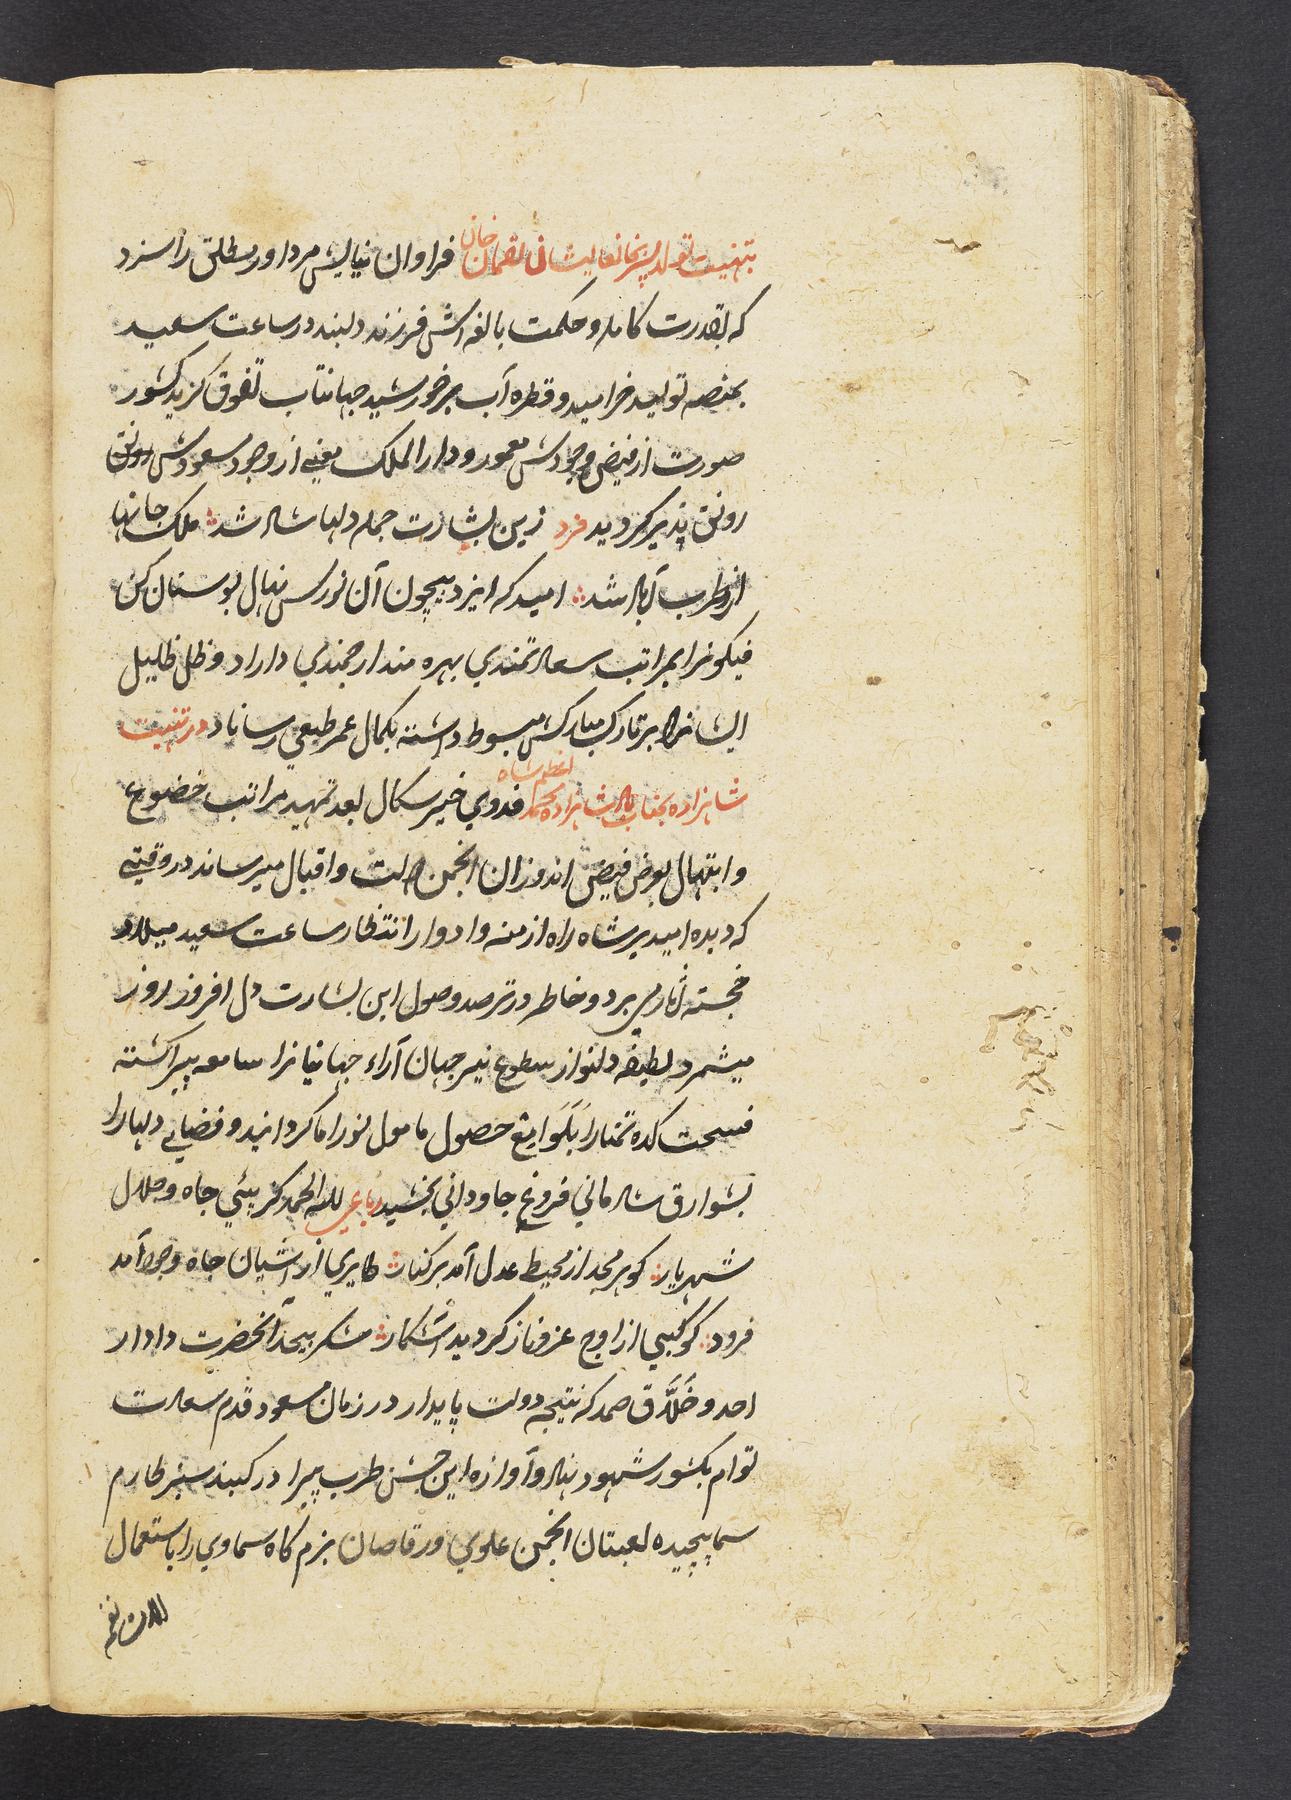 تهنیت تولد پسر بخانعالیشان لقمان خان فراوان نیایش مر داور مطلق را سزد
که بقدرت کامله و حکمت بالغه اش فرزند دلبند در ساعت سعید
بمنصه تولید خرامید و قطره آب بر خورشید جهانتاب تفوق کزید کشور
صورت از فیض وجودش معمور و دارالملک معنی از وجود مسعودش رونق
رونق پذیر کردید فرد زین بشارت جمله دلها شاد شد ملک جانها
از طرب آباد شد امید که ایزد بیچون آن نورس نهال بوستان کن
فیکونرا بمراتب سعادتمندي بهره مند ارجمندي داراد و ظل ظلیل
ایشانرا بر تارک مبارکش مبسوط داشته بکمال عمر طبعي رساناد در تهنیت
شاهزاده بجناب پادشاهزاده محمد اعظم شاه فدوي خیرسکال بعد تمهید مراتب خضوع
و ابتهال بعرض فیض اندوزان انجمن دولت و اقبال میرساند در وقتیکه
که دیده امید بر شاه راه ازمنه و ادوار انتظار ساعت سعید میلاد
خجسته آثار می برد و خاطر در ترصد وصول این بشارت دل افروز روز
میشمرد لطیفه دلنواز سطوع نیر جهان آراء جهانیانرا سامعه پیرا کشته
فسحت کده تمنا را بلوامع حصول مامول نور اما کردانید و فضایی دلها را
بشوارق شادماني فروغ جاوداني بخشید رباعي لله الحمد کز پیئي جاه و جلال
شهریار کوهر مجد از محیط عدل آمد بر کنار طایري از آشیان جاه و جود آمد
فرود کوکبي از اوج عز و ناز کردید آشکار شکر بیحد آنحضرت دادار
احد و خلاق صمد که نتیجه دولت پایدار در زمان مسعود قدم سعادت
توام بکشور شهود نهاد و آوازه این جشن طرب پیرا در کنبد سبز طارم
سما پیچیده لعبتان انجمن علوي و رقاصان بزم کاه سماوي را باستعمال